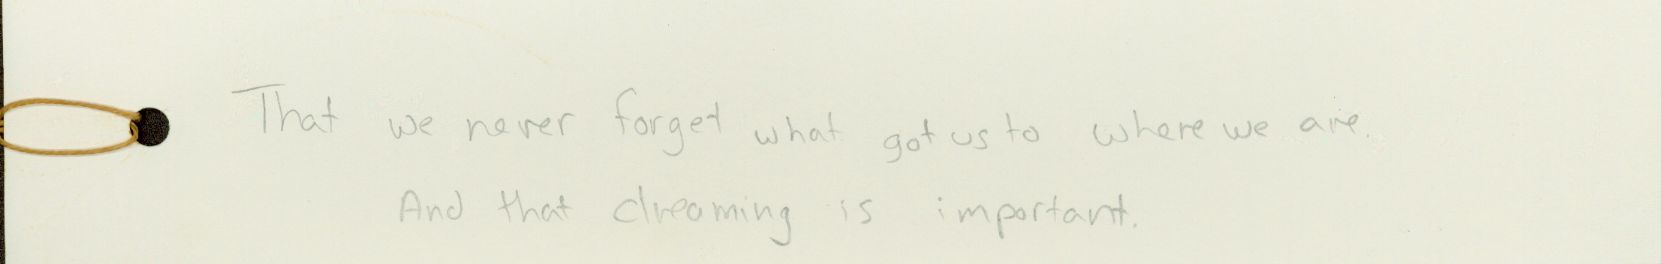 That we never forget what got us to where we are.
And that dreaming is important.